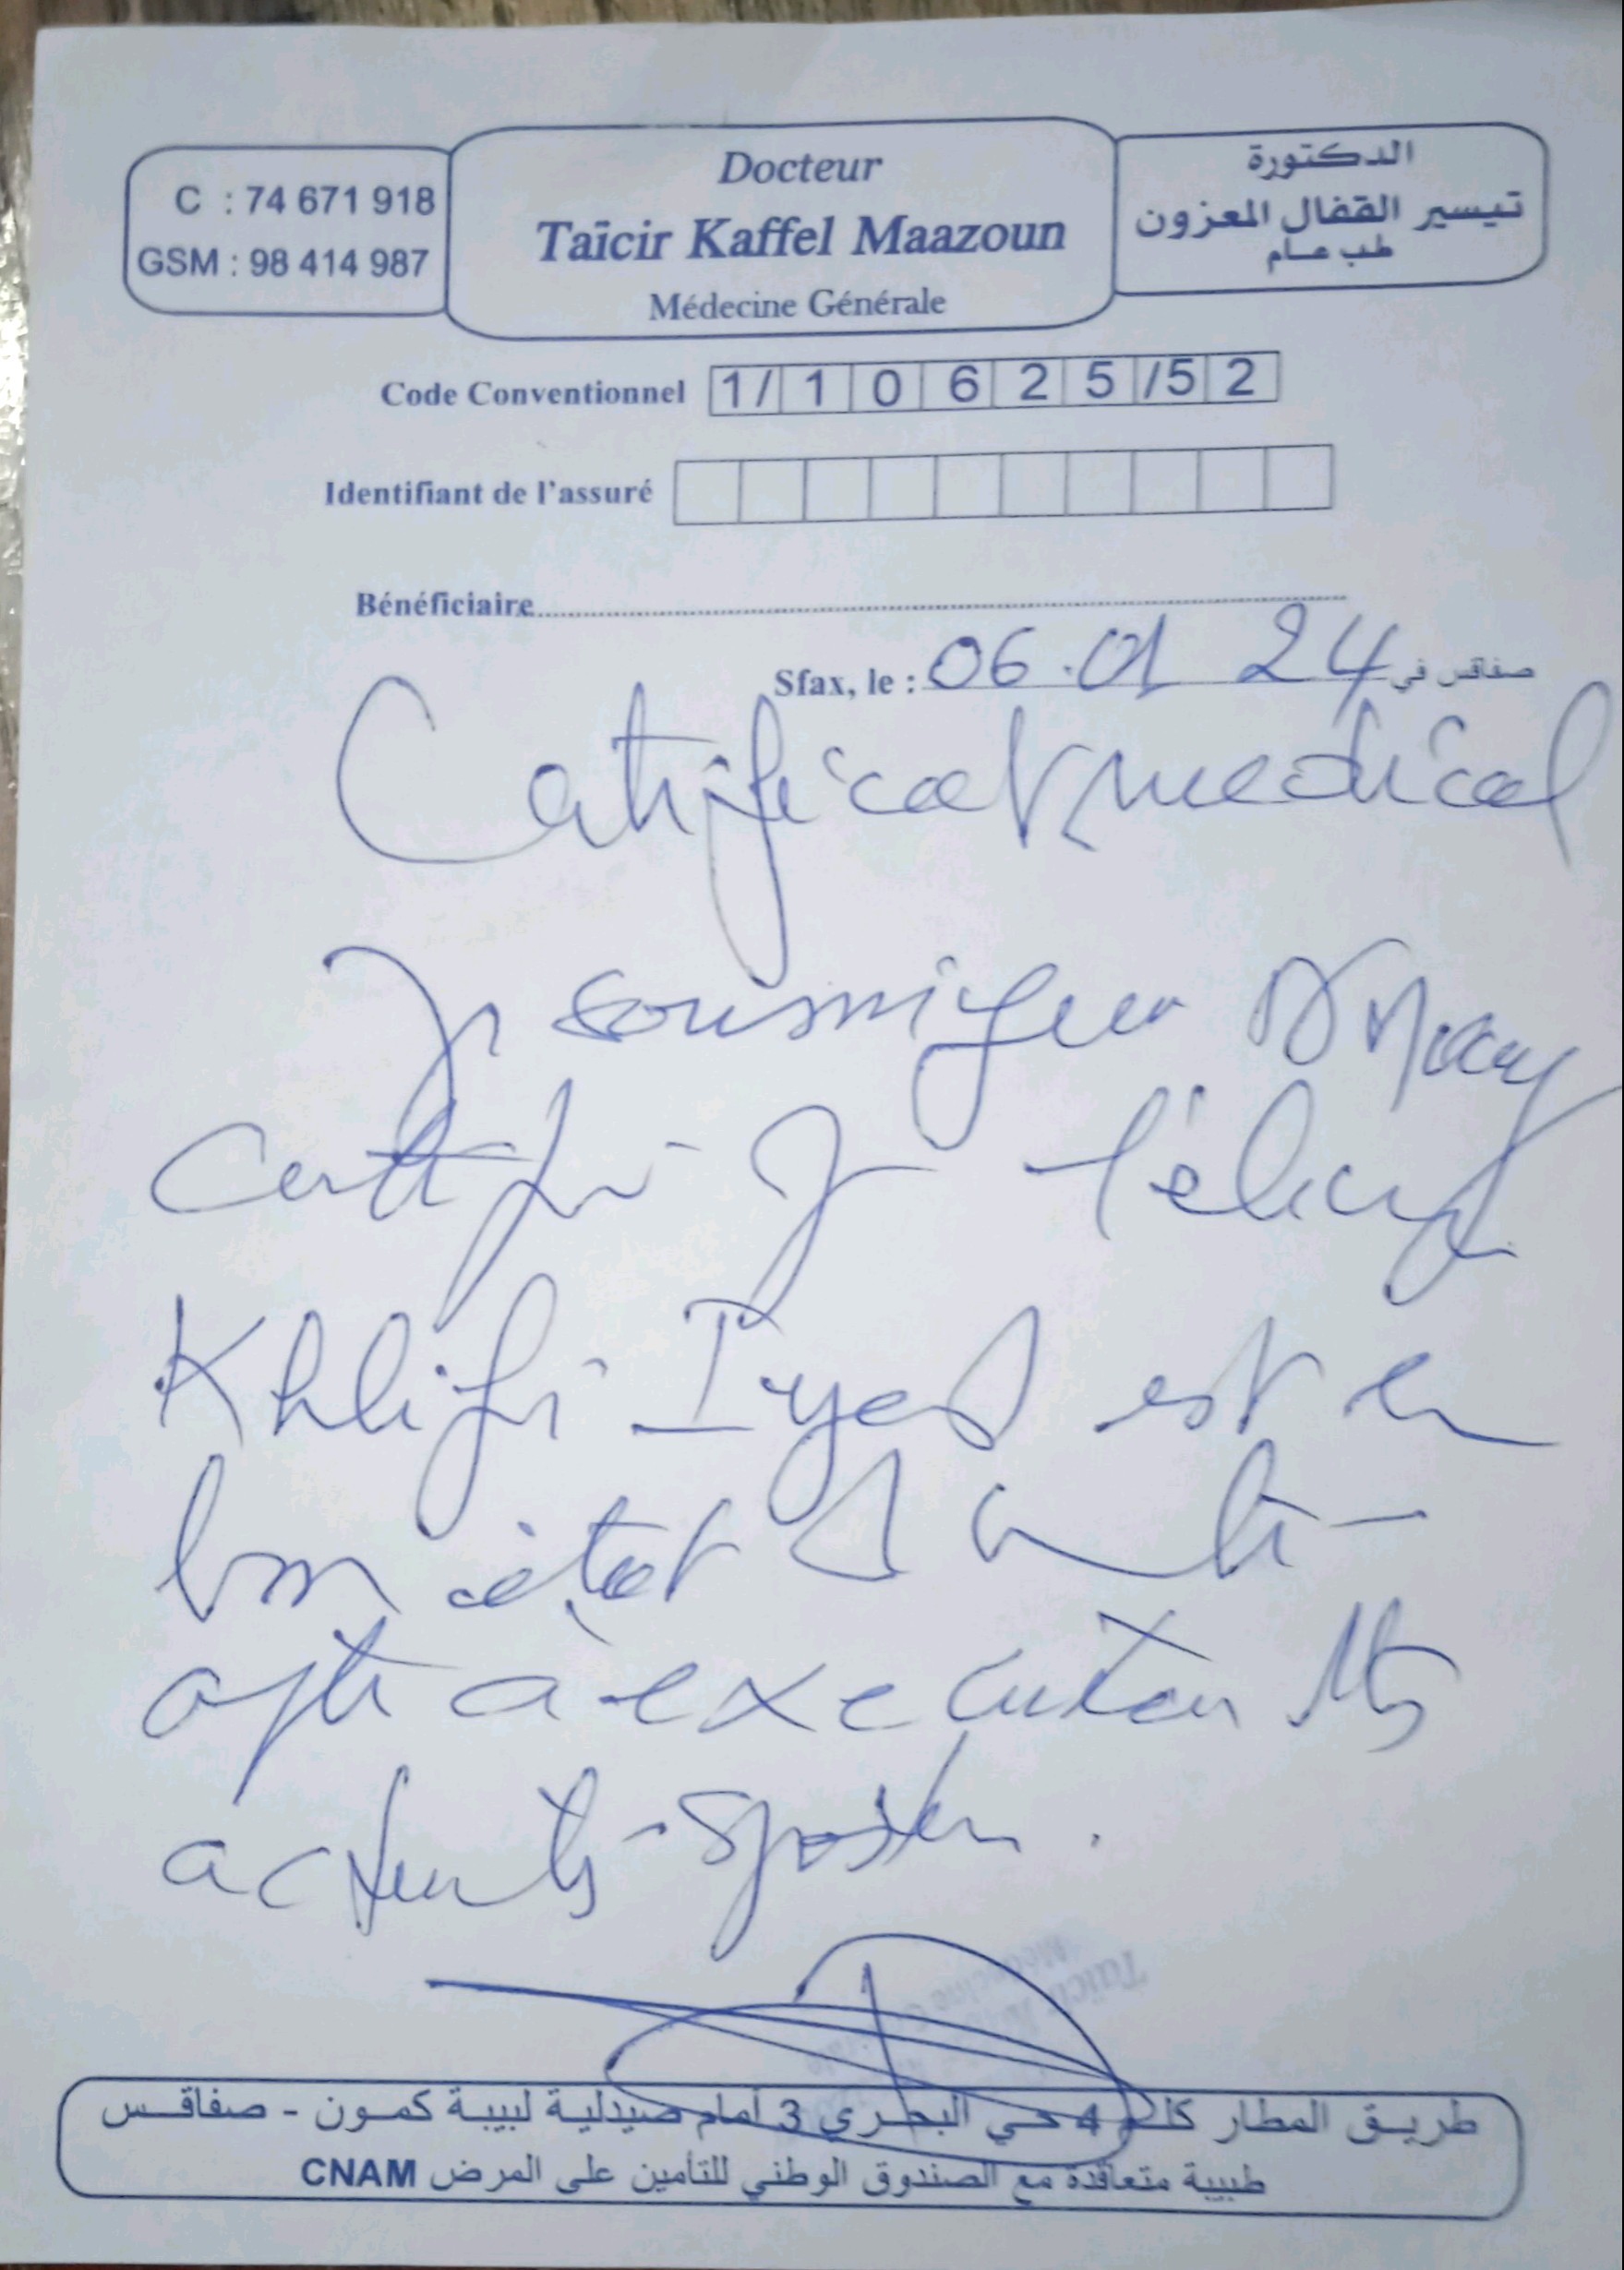 C : 74 671 918
GSM : 98 414 987
Docteur
Taïcir Kaffel Maazoun
Médecine Générale
الدكتورة
تيسير القفال المعزون
طب عام
Code Conventionnel 1/ 1 0 6 2 5 /5 2
Identifiant de l'assuré
Bénéficiaire
Sfax, le : 06.01 24 صفاقس في
Certificat medical
Je soussigné Dr
certifie q l'élève
Khlifi Iyed est en
bon état
apte à exécuter les
activités sportives.
طريق المطار كلم 4 حي البحري 3 أمام صيدلية لبيبة كمون - صفاقس
طبيبة متعاقدة مع الصندوق الوطني للتأمين على المرض CNAM